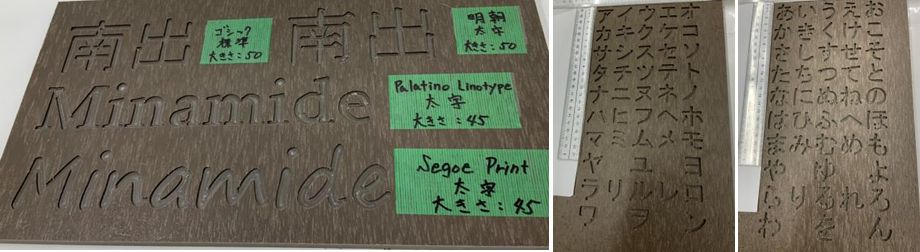 南出 南出
ゴシック
標準
大きさ:50
明朝
太字
大きさ:50
Minamide
Palatino Linotype
太字
大きさ:45
Minamide
Segoe Print
太字
大きさ:45
アイウエオ
カキクケコ
サシスセソ
タチツテト
ナニヌネノ
ハヒフヘホ
マミムメモ
ヤユヨ
ラリルレロ
ワヲン
あいうえお
かきくけこ
さしすせそ
たちつてと
なにぬねの
はひふへほ
まみむめも
やゆよ
らりるれろ
わをん